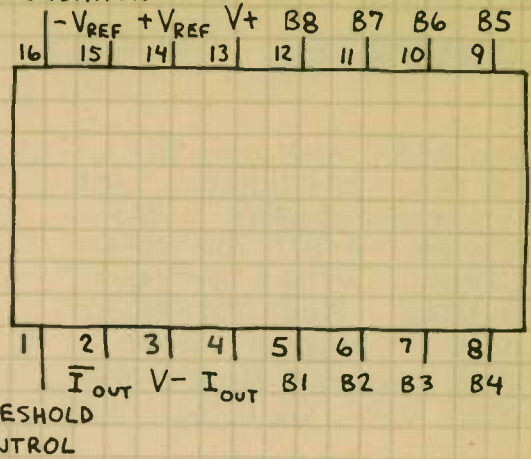 -VREF +VREF V+ B8 B7 B6 B5
16 15 14 13 12 11 10 9
1 2 3 4 5 6 7 8
IOUT V- IOUT B1 B2 B3 B4
ESHOLD
NTROL